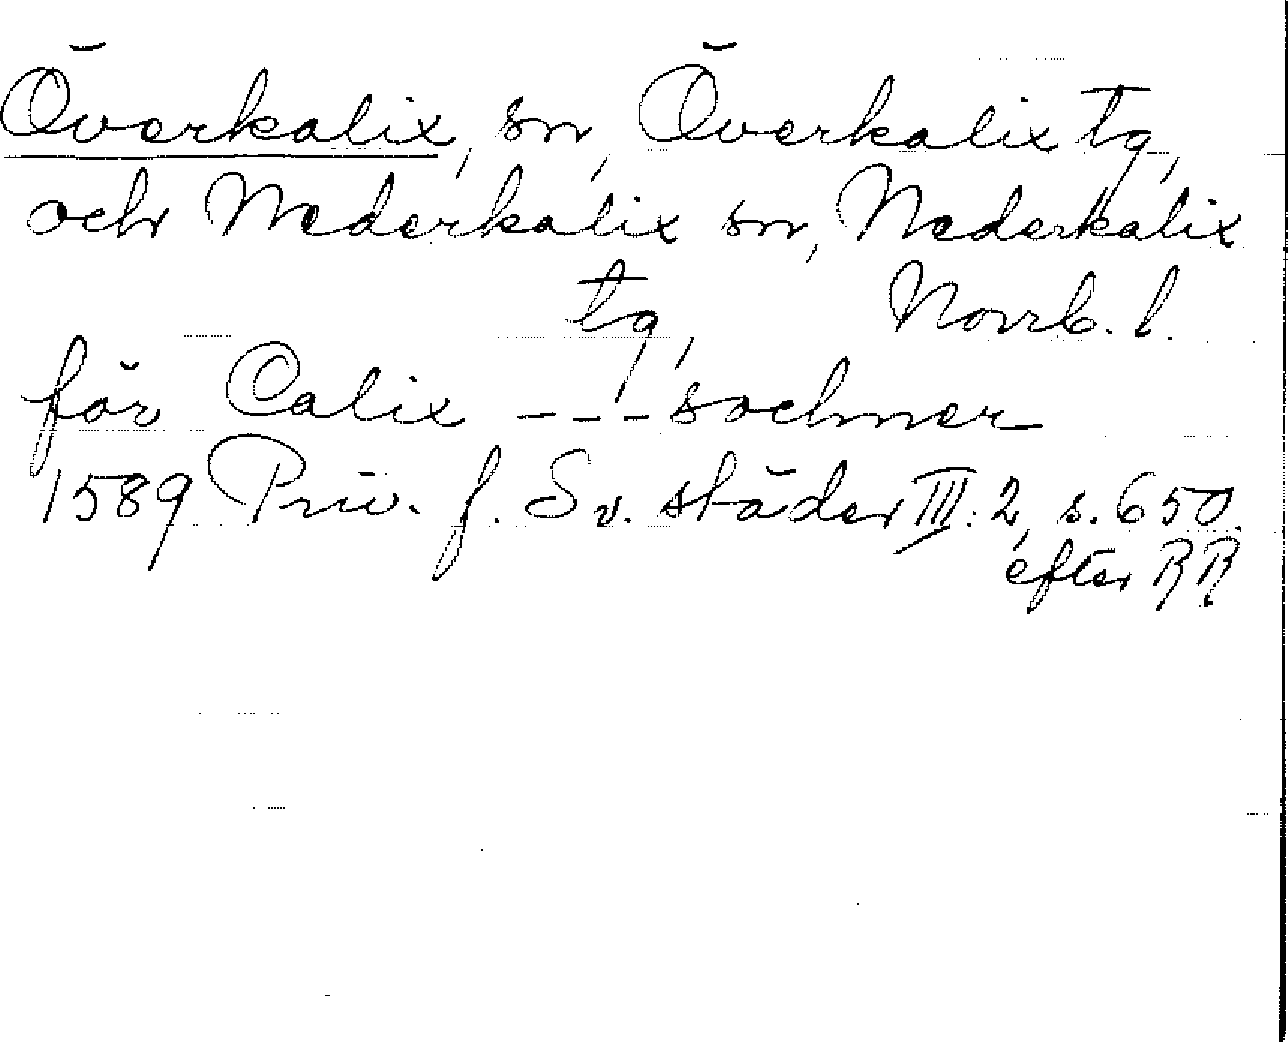 Överkalix, sn, Överkalix tg,
och Nederkalix sn, Nederkalix
tg, Norrb. l.
för Calix --- sochner
1589 Priv. f. Sv. städer III:2, s. 650.
efter RR